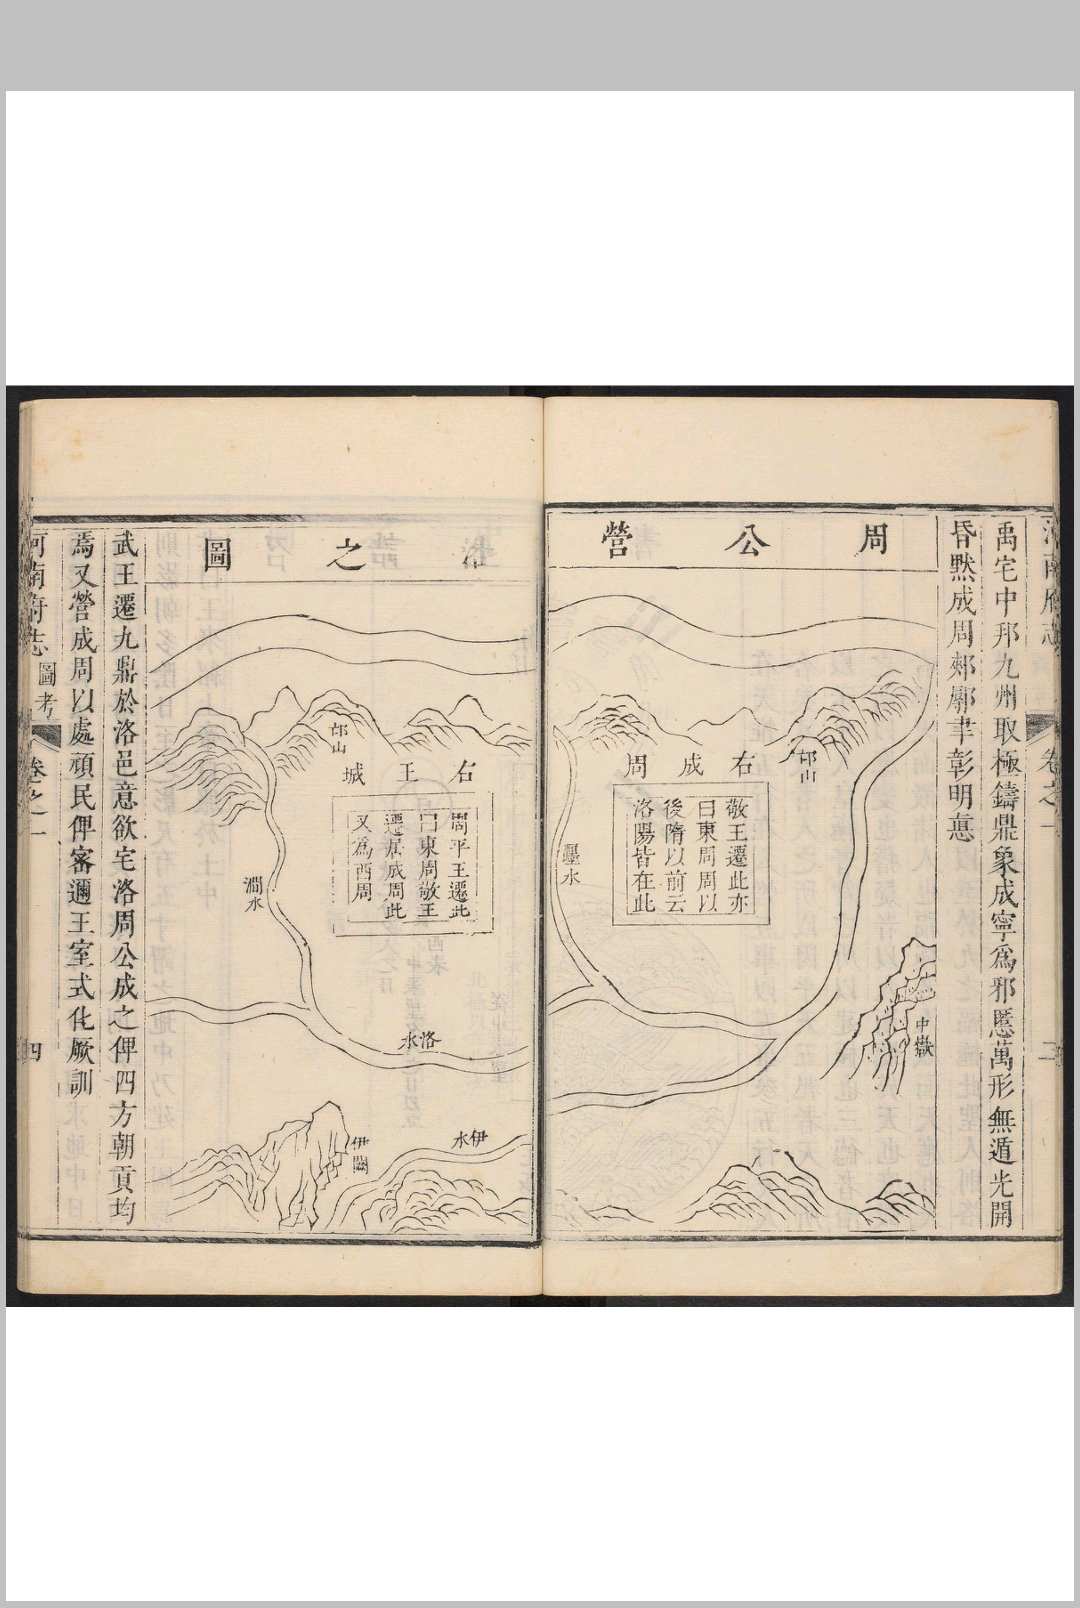 河南府志
卷之一
禹宅中邦九州取極鑄鼎象成寧爲邪慝萬形無遁光開
昏默成周郟鄏聿彰明悳
周公營
右成周
敬王遷此亦
曰東周周以
後隋以前云
洛陽皆在此
邙山
瀍水
中嶽
洛之圖
右王城
周平王遷此
曰東周敬王
遷居成周此
又爲西周
邙山
澗水
洛水
伊水
伊闕
武王遷九鼎於洛邑意欲宅洛周公成之俾四方朝貢均
焉又營成周以處頑民俾密邇王室式化厥訓
河南府志
圖考
卷之一
四